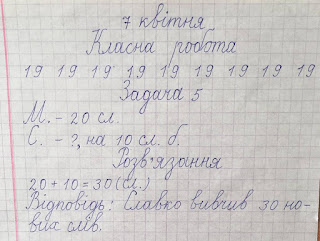 7 квітня
Класна робота
19 19 19 19 19 19 19 19 19
Задача 5
М. – 20 сл.
С. – ?, на 10 сл. б.
Розв'язання
20 + 10 = 30 (сл.)
Відповідь: Славко вивчив 30 но-
вих слів.